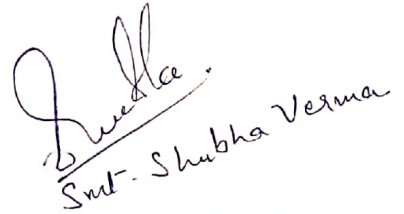 Smt. Shubha Verma